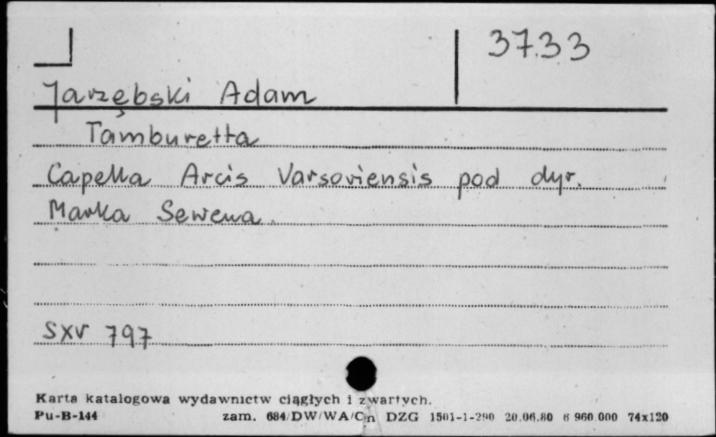 3733
Jarzębski Adam
Tamburetta
Capella Arcis Varsoviensis pod dyr.
Marka Sewena.
SXV 797
Karta katalogowa wydawnictw ciągłych i zwartych.
Pu-B-144 zam. 684/DW/WA/Cn DZG 1501-1-290 20.06.80 6 960 000 74x120